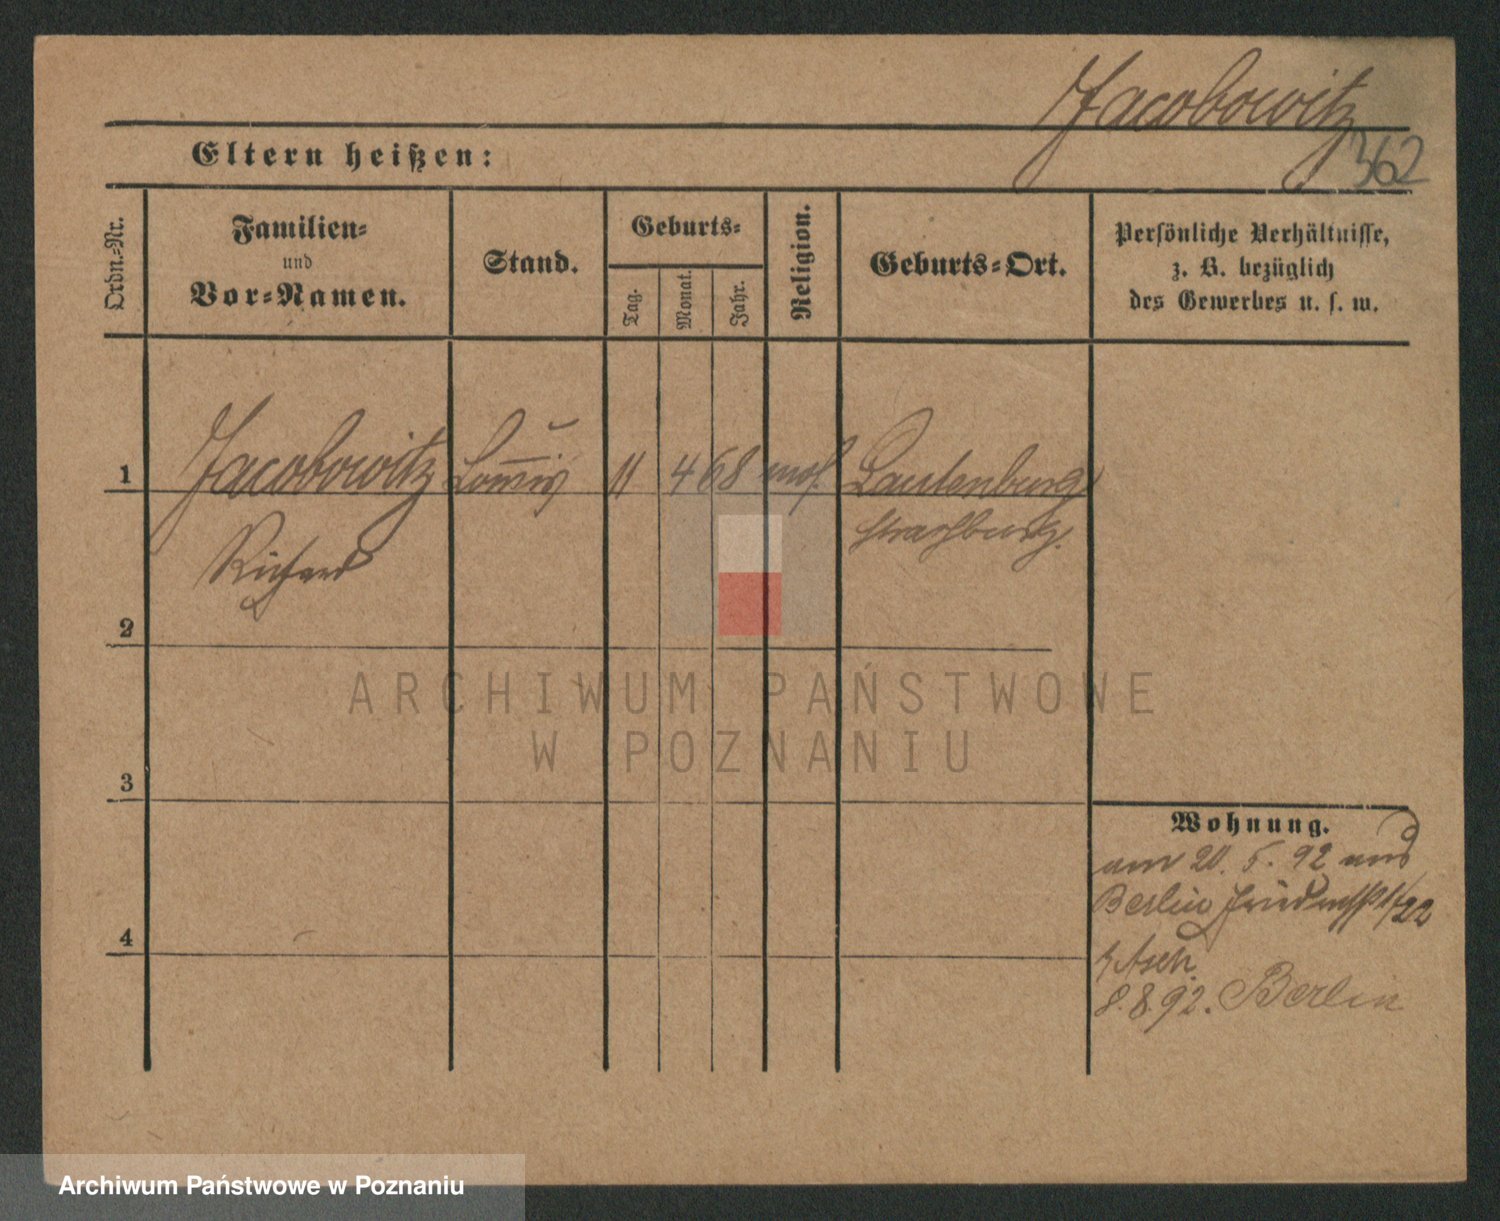 Jacobowitz
Eltern heißen:
362
Ordn.-Nr.
Familien-
und
Vor-Namen.
Stand.
Geburts-
Tag.
Monat.
Jahr.
Religion.
Geburts-Ort.
Persönliche Verhältnisse,
z. B. bezüglich
des Gewerbes u. s. w.
1
Jacobowitz
11 4 68 mos. Lautenburg
Strasburg.
Richard
2
ARCHIWUM PAŃSTWOWE
W POZNANIU
3
Wohnung.
am 20. 5. 92 aus
Berlin
4
8.8.92. Berlin
Archiwum Państwowe w Poznaniu